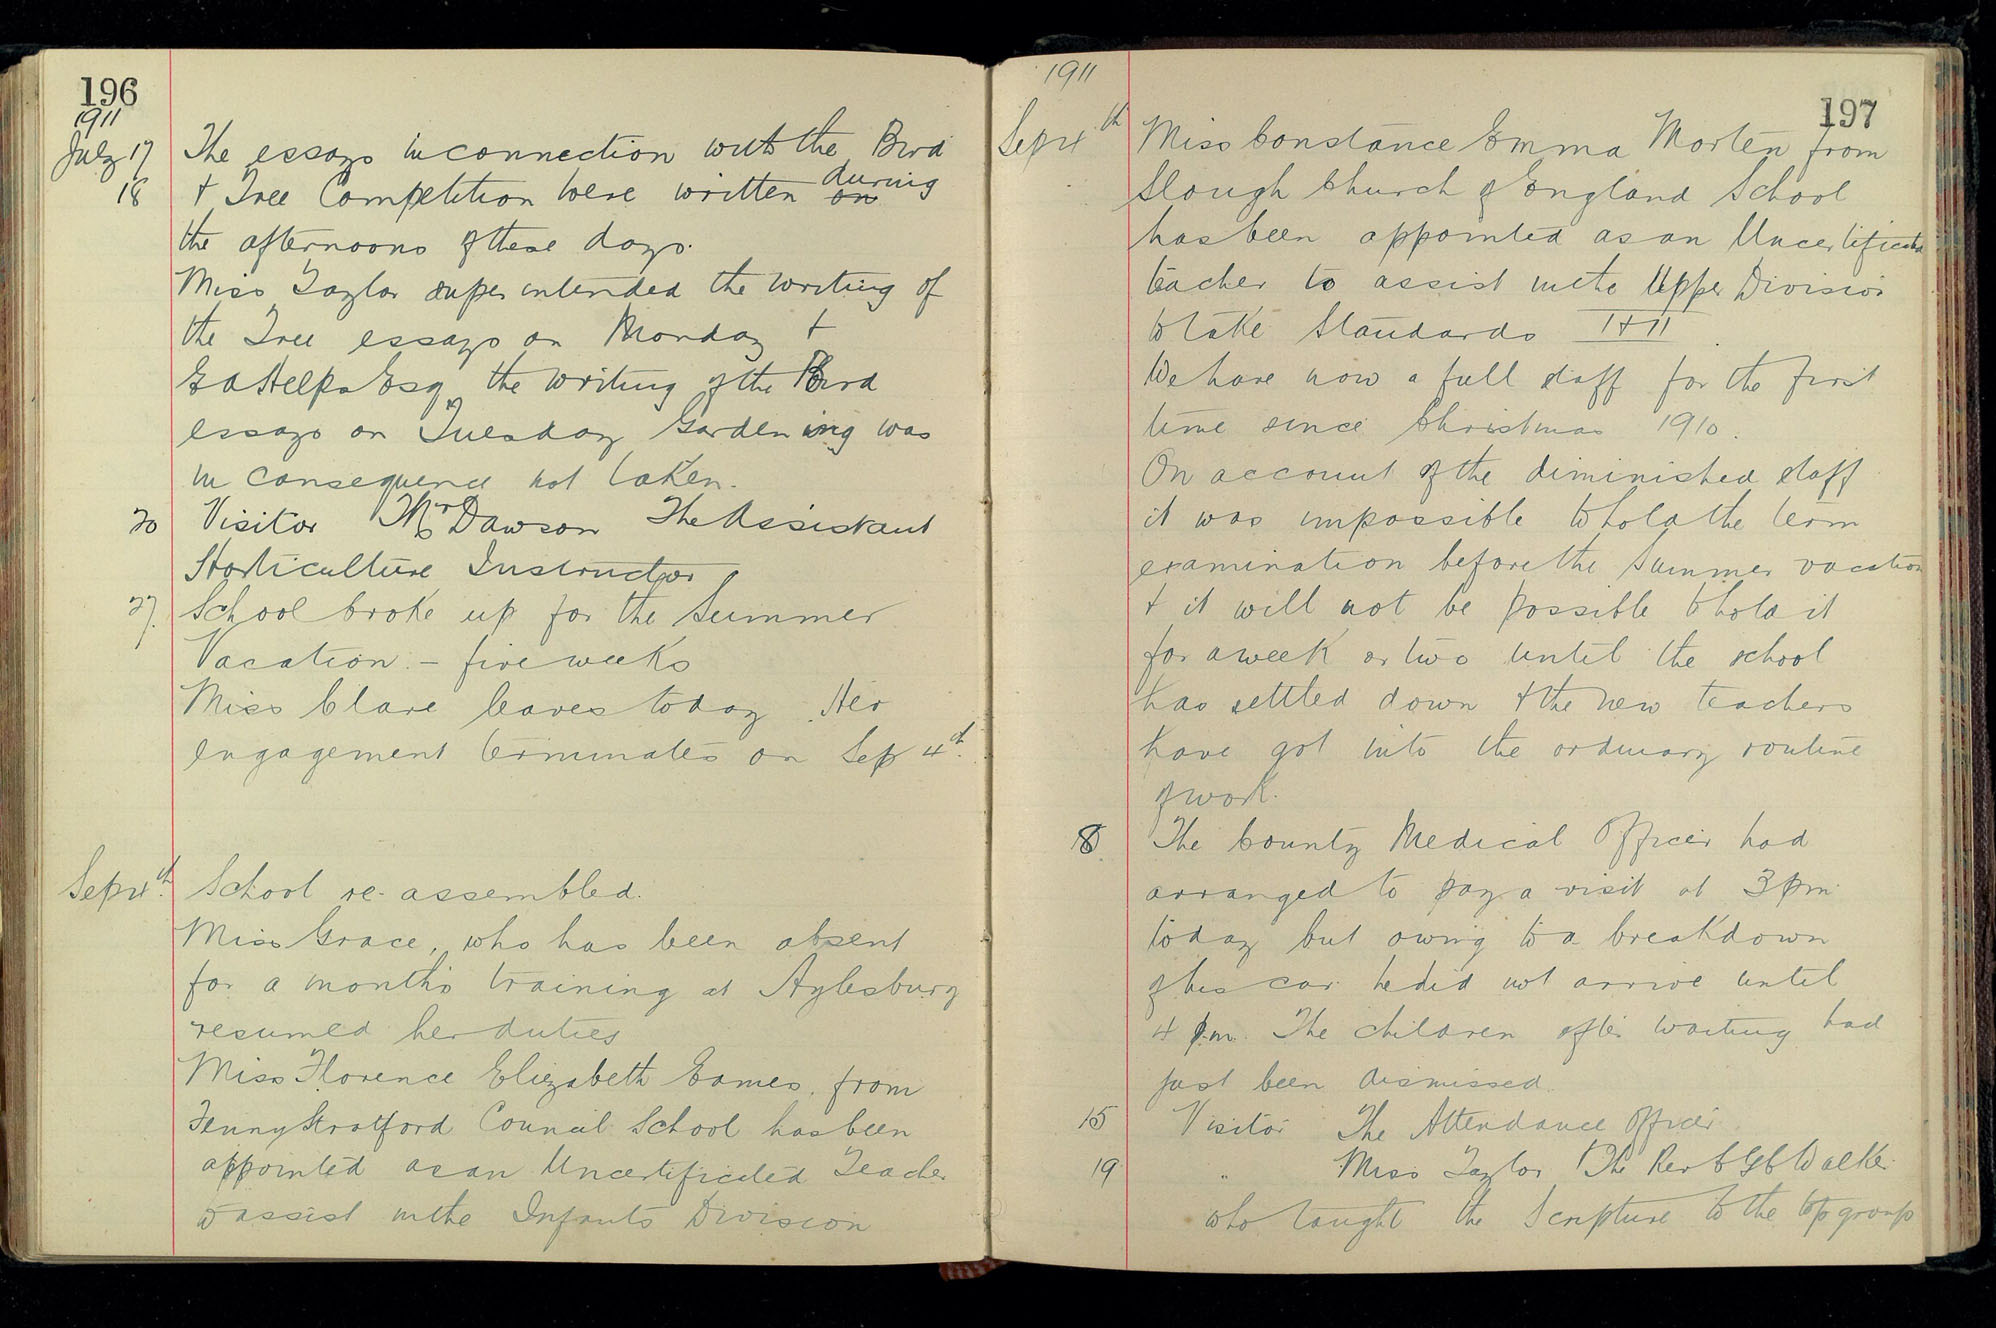 196
1911
July 17 The essays in connection with the Bird
18 & Tree Competition were written on during
the afternoons of these days.
Miss Taylor superintended the writing of
the Tree essays on Monday &
E A Helps Esq the writing of the Bird
essays on Tuesday Gardening was
in consequence not taken.
20 Visitor Mr Dawson The Assistant
Horticulture Instructor
27. School broke up for the Summer
Vacation. – five weeks
Miss Clare leaves today. Her
engagement terminates on Sep 4th.
Sep 4th. School re-assembled.
Miss Grace, who has been absent
for a month's training at Aylesbury
resumed her duties
Miss Florence Elizabeth Eames, from
Fenny Stratford Council School has been
appointed as an Uncertificated Teacher
to assist in the Infants Division
1911
197
Sep 4th Miss Constance Emma Morten from
Slough Church of England School
has been appointed as an Uncertificated
teacher to assist in the Upper Division
to take Standards I & II.
We have now a full staff for the first
time since Christmas 1910.
On account of the diminished staff
it was impossible to hold the term
examination before the Summer vacation
& it will not be possible to hold it
for a week or two until the school
has settled down & the new teachers
have got into the ordinary routine
of work.
8. The County Medical Officer had
arranged to pay a visit at 3 pm.
today but owing to a breakdown
of his car he did not arrive until
4 p.m. The children after waiting had
just been dismissed.
15 Visitor The Attendance Officer.
19 " Miss Taylor & The Rev C G C Walker
who taught the Scripture to the top group